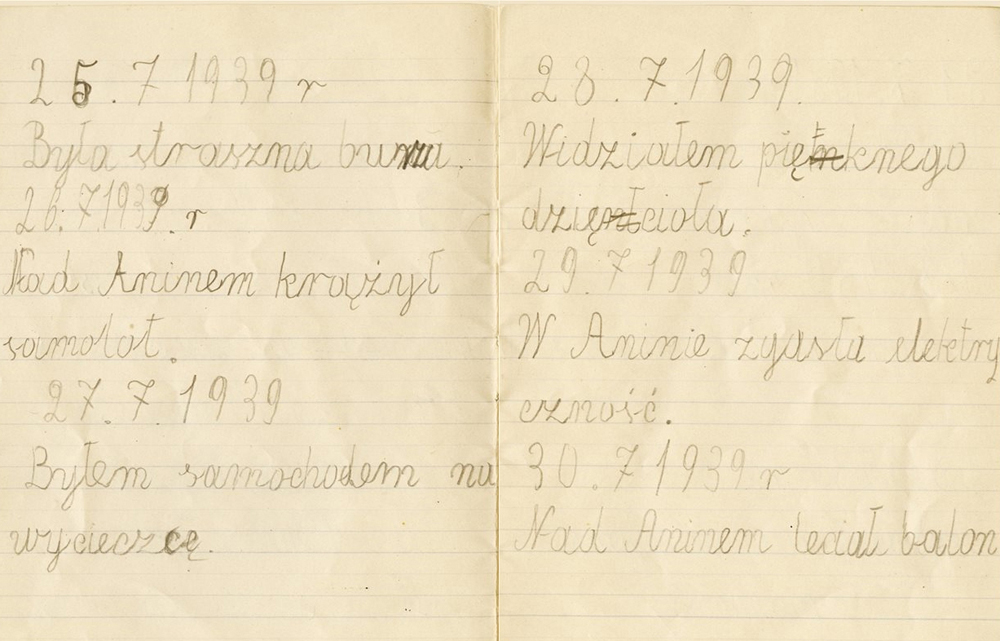 25.7 1939 r
Była straszna burza.
26.7.1939.r
Nad Aninem krążył
samolot.
27.7.1939
Byłem samochodem na
wycieczcę.
28.7.1939.
Widziałem pięknego
dzięcioła.
29.7 1939
W Aninie zgasła elektry
czność.
30.7 1939 r
Nad Aninem leciał balon